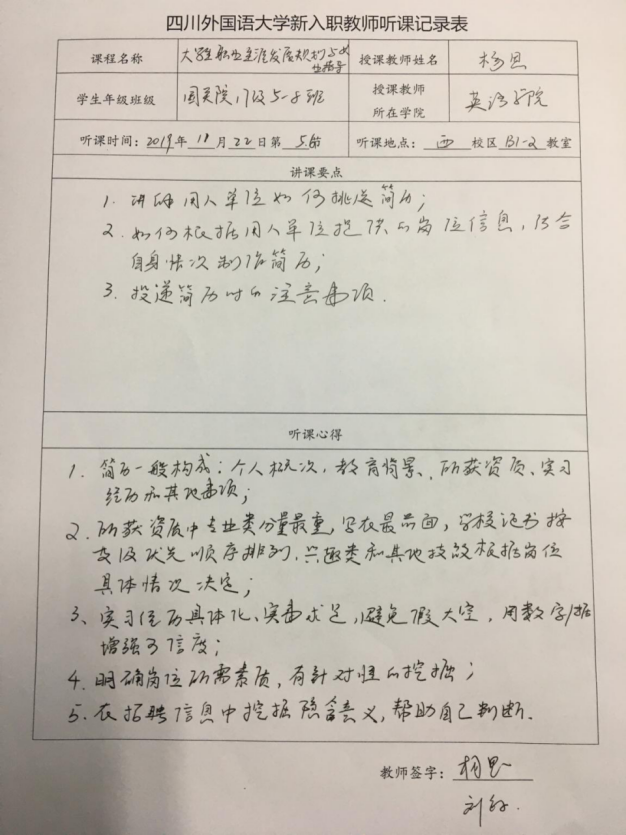 四川外国语大学新入职教师听课记录表
课程名称 大学生职业生涯发展规划与就业指导 授课教师姓名 杨思
学生年级班级 国关院,17级5-8班 授课教师所在学院 英语学院
听课时间:2019年11月22日第5.6节 听课地点:西校区B1-2教室
讲课要点
1. 讲解用人单位如何挑选简历;
2. 如何根据用人单位提供的岗位信息,结合
自身情况制作简历;
3. 投递简历时的注意事项.
听课心得
1. 简历一般构成:个人概况,教育背景、所获资质、实习
经历和其他事项;
2. 所获资质中专业类分量最重,写在最前面,学校证书按
级优先顺序排列,兴趣类和其他技能根据岗位
具体情况决定;
3、实习经历具体化、实事求是,避免假大空,用数字/据
增强可信度;
4. 明确岗位所需素质,有针对性的挖掘;
5. 在招聘信息中挖掘隐含意义,帮助自己判断.
教师签字:杨思
刘